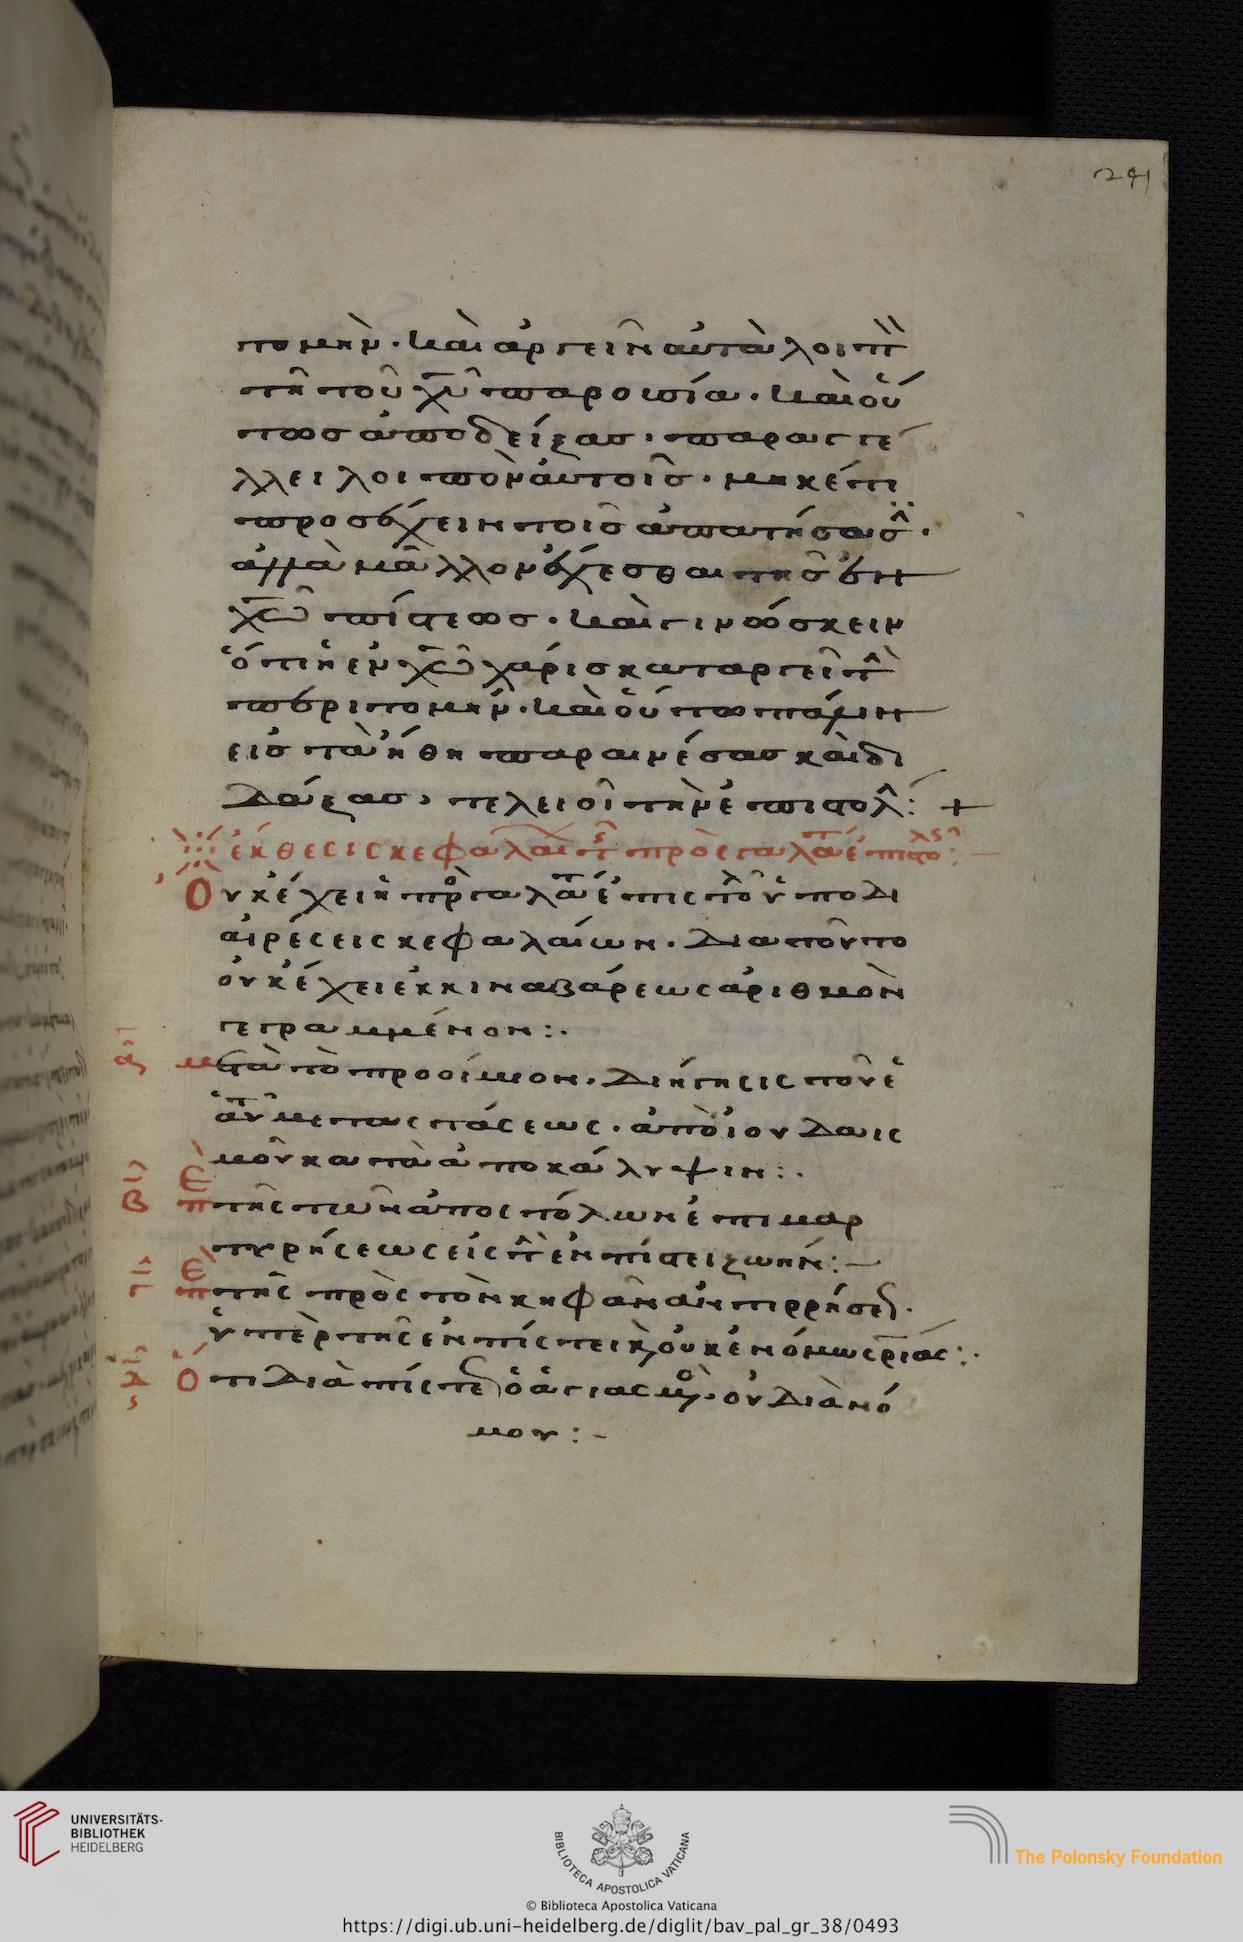 241
τομὴν · καὶ ἀργεῖν αὐτὰ λοιπ
τῇ τοῦ χῦ παρουσία · καὶ οὕ
τως ἀποδείξας · παραγγέ
λλει λοιπὸν αὐτοῖς · μηκέτι
προσέχειν τοῖς ἀπατήσασ ·
ἀλλὰ μᾶλλον ἔχεσθαι τῆς ἐν
χω πίστεως · καὶ γινώσκειν
ὅτι ἡ ἐν χω χάρις καταργεῖ τ
περιτομήν · καὶ οὕτω πάλιν
εἰς τὰ ἤθη παραινέσας καὶ δι
δάξας · τελειοῖ τὴν ἐπιστολ : +
ἔκθεσις κεφαλαι τ πρὸς γαλα ἐπιστο :
Οὐκ ἔχει ἡ πρ γαλα ἐπιστολ ὑποδι
αιρέσεις κεφαλαίων · διατοῦτο
οὐκ ἔχει ἐκ κινναβάρεως ἀριθμὸν
γεγραμμένον :
α μετὰ τὸ προοίμιον · διήγησις τοῦ ἑ
αυτοῦ μεταστάσεως · ἀπὸ ἰουδαισ
μοῦ κατὰ ἀποκάλυψιν :
β Περὶ τῆς τῶν ἀποστόλων ἐπιμαρ
τυρήσεως εἰς τ ἐν πίστει ζωήν : —
γ Περὶ τῆς πρὸς τὸν κηφᾶν ἀντιρρήσε ·
ὑπὲρ τῆς ἐν πίστει κ οὐκ ἐν νόμω σριάς :
δ Ὅτι διὰ πίστε ὁ ἁγιασμ · οὐ διὰ νό
μου : -
UNIVERSITÄTS-
BIBLIOTHEK
HEIDELBERG
BIBLIOTECA APOSTOLICA VATICANA
The Polonsky Foundation
© Biblioteca Apostolica Vaticana
https://digi.ub.uni-heidelberg.de/diglit/bav_pal_gr_38/0493